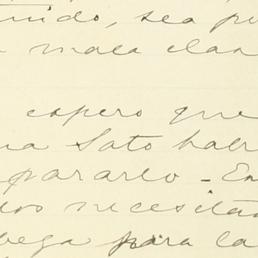 nido, sea p
mala clas
espero que
na Soto hab
pararlo - En
dos necesita
bega para la